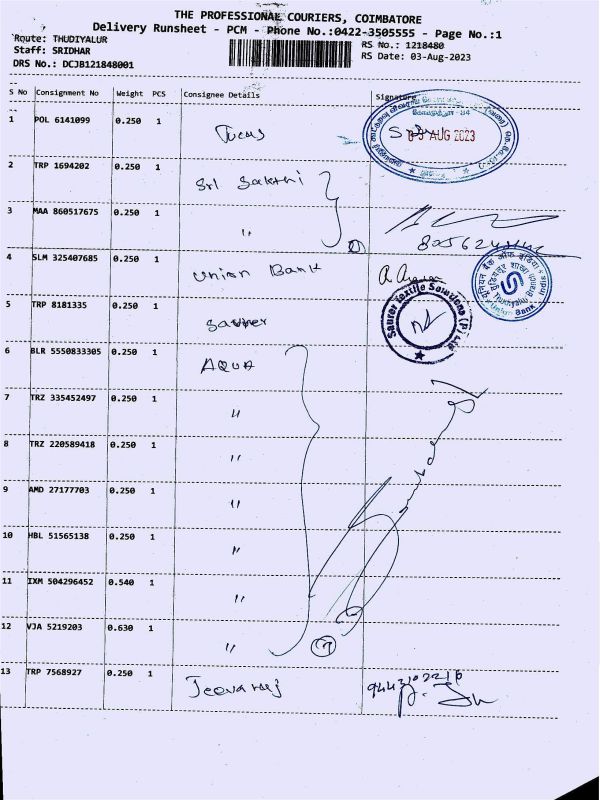 THE PROFESSIONAL COURIERS, COIMBATORE
Delivery Runsheet - PCM - Phone No.:0422-3505555 - Page No.:1
Route: THUDIYALUR
RS No.: 1218480
Staff: SRIDHAR
RS Date: 03-Aug-2023
DRS No.: DCJB121848001
S No Consignment No Weight PCS Consignee Details Signature
1 POL 6141099 0.250 1
AUG 2023
2 TRP 1694202 0.250 1 Sri Sakthi
3 MAA 860517675 0.250 1 "
4 SLM 325407685 0.250 1 Union Bank
यूनियन बैंक ऑफ इंडिया
Union Bank
5 TRP 8181335 0.250 1
Saurer Textile Solutions (P) Ltd
6 BLR 5550833305 0.250 1 AQUA
7 TRZ 335452497 0.250 1 "
8 TRZ 220589418 0.250 1 "
9 AMD 27177703 0.250 1 "
10 HBL 51565138 0.250 1 "
11 IXM 504296452 0.540 1 "
12 VJA 5219203 0.630 1 "
7
13 TRP 7568927 0.250 1 Jeevaraj